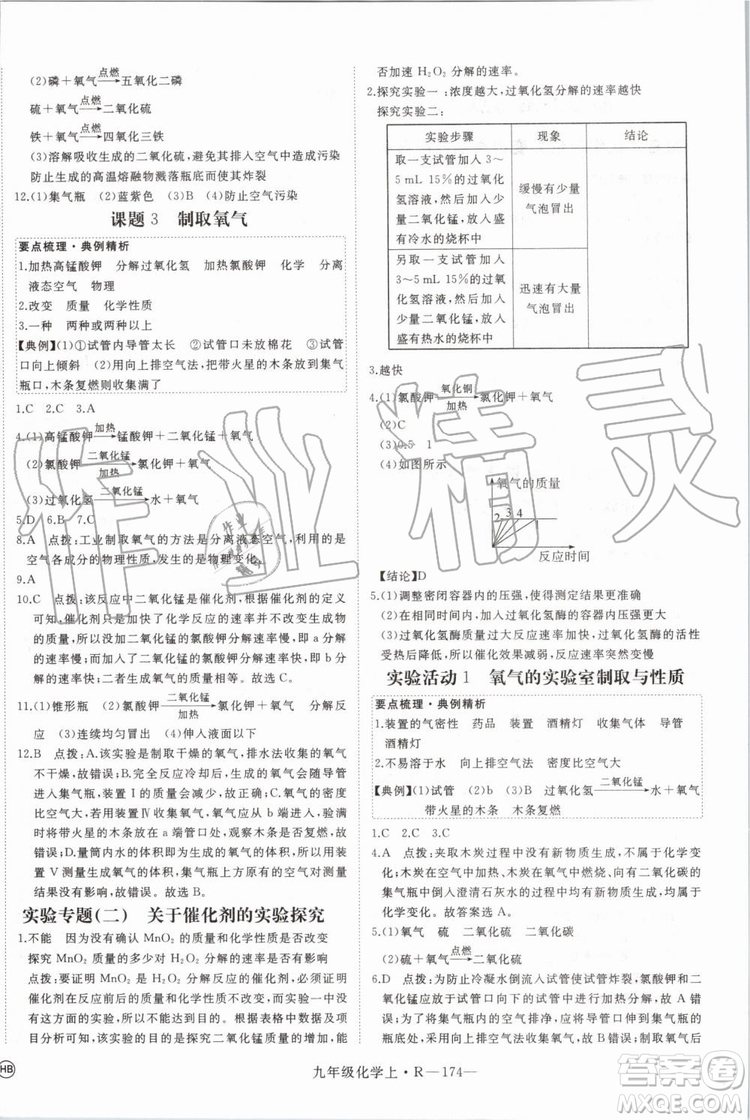 (2)磷＋氧气 点燃→ 五氧化二磷
硫＋氧气 点燃→ 二氧化硫
铁＋氧气 点燃→ 四氧化三铁
(3)溶解吸收生成的二氧化硫，避免其排入空气中造成污染
防止生成的高温熔融物溅落瓶底而炸裂瓶底
12.(1)集气瓶 (2)蓝紫色 (3)B (4)防止空气污染
课题 3 制取氧气
要点梳理·典例精析
1.加热高锰酸钾 分解过氧化氢 加热氯酸钾 化学 分离
液态空气 物理
2.改变 质量 化学性质
3.一种 两种或两种以上
【典例】(1)①试管内导管太长 ②试管口未放棉花 ③试管
口向上倾斜 (2)用向上排空气法，把带火星的木条放到集气
瓶口，木条复燃则收集满了
1.C 2.C 3.A
4.(1)高锰酸钾 加热→ 锰酸钾＋二氧化锰＋氧气
(2)氯酸钾 二氧化锰/加热→ 氯化钾＋氧气
(3)过氧化氢 二氧化锰→ 水＋氧气
5.D 6.B 7.C
8.A 点拨：工业制取氧气的方法是分离液态空气，利用的是
空气各成分的物理性质，发生的是物理变化。
9.A
10.C 点拨：该反应中二氧化锰是催化剂，根据催化剂的定义可
知，催化剂只是加快了化学反应的速率并不改变生成物的
质量。不加二氧化锰的氯酸钾分解速率慢，即 a 分解
的速率慢，加了二氧化锰的氯酸钾分解的速率快，即 b 分
解的速率快，但两者生成氧气的质量相等。故选 C。
11.(1)锥形瓶 (2)氯酸钾 二氧化锰/加热→ 氯化钾＋氧气
(3)连续均匀冒出 (4)伸入液面以下
12.B 点拨：A.该实验是制取干燥的氧气，排水法收集的氧气
不干燥，故错误；B.通过分液漏斗可以控制滴加液体的速
率使集气瓶收集满氧气，故正确；C.氧气的密度
比空气大，若用装置Ⅳ收集氧气，氧气从 b 端进入，验满
时将带火星的木条放在 a 端管口处，观察木条是否复燃，
故错误；D.量筒内水的体积即为生成的氧气的体积，用装
置 Ⅴ 测量氧气的体积时，集气瓶内原有的空气对实验结
果没有影响，故错误。故选 B。
实验专题(二) 关于催化剂的实验探究
1.不能 因为没有确认 MnO₂ 的质量和化学性质是否改变
探究 MnO₂ 质量的多少对 H₂O₂ 分解的速率是否有影响
点拨：要证明 MnO₂ 是 H₂O₂ 分解反应的催化剂，必须确认
催化剂在反应前后的质量和化学性质不变；根据表中数据及项
目分析可知，本实验探究二氧化锰质量的增加，能
否加速 H₂O₂ 分解的速率。
2.探究实验一：浓度越大，过氧化氢分解的速率越快
探究实验二：
实验步骤 现象 结论
取一支试管加入 3～5 mL 15%的过氧化氢溶液，然后加入少量二氧化锰，放入盛有冷水的烧杯中 缓慢有少量气泡冒出
另取一支试管加入 3～5 mL 15%的过氧化氢溶液，然后加入少量二氧化锰，放入盛有热水的烧杯中 迅速有大量气泡冒出
3.越快
4.(1)氯酸钾 氧化铜/加热→ 氯化钾＋氧气
(2)C
(3)0.5 1
(4)如图所示
氧气的质量
2 3 4 1
反应时间
【结论】D
5.(1)测定反应相同时间容器内的压强，或测定
(2)在相同时间，测定加入过氧化氢酶的容器内压强
(3)过氧化氢酶质量过大反应速率过快，过氧化氢酶的活性
受反应温度影响，催化效果减弱，反应速率变慢
实验活动 1 氧气的实验室制取与性质
要点梳理·典例精析
1.装置的气密性 药品 装置 酒精灯 收集气体 导管
酒精灯
2.不易溶于水 向上排空气法 密度比空气大
【典例】(1)试管 (2)b (3)过氧化氢 二氧化锰→ 水＋氧气
带火星的木条 木条复燃
1.C 2.C 3.C
4.A 点拨：夹取木炭过程中没有新物质生成，点燃木炭、木
炭在氧气中燃烧、往集气瓶中倒入澄清石灰水的变化过程中都有新物质生成，属于化学变化。故答案选 A。
5.(1)氧气 硫 二氧化硫 二氧化硫
(2)硫＋氧气 点燃→ 二氧化硫
6.D 点拨：为防止冷凝水倒流入试管使试管炸裂，氯酸钾和
二氧化锰制取氧气时应使试管口向下的不能向上，
九年级化学上·R—174—